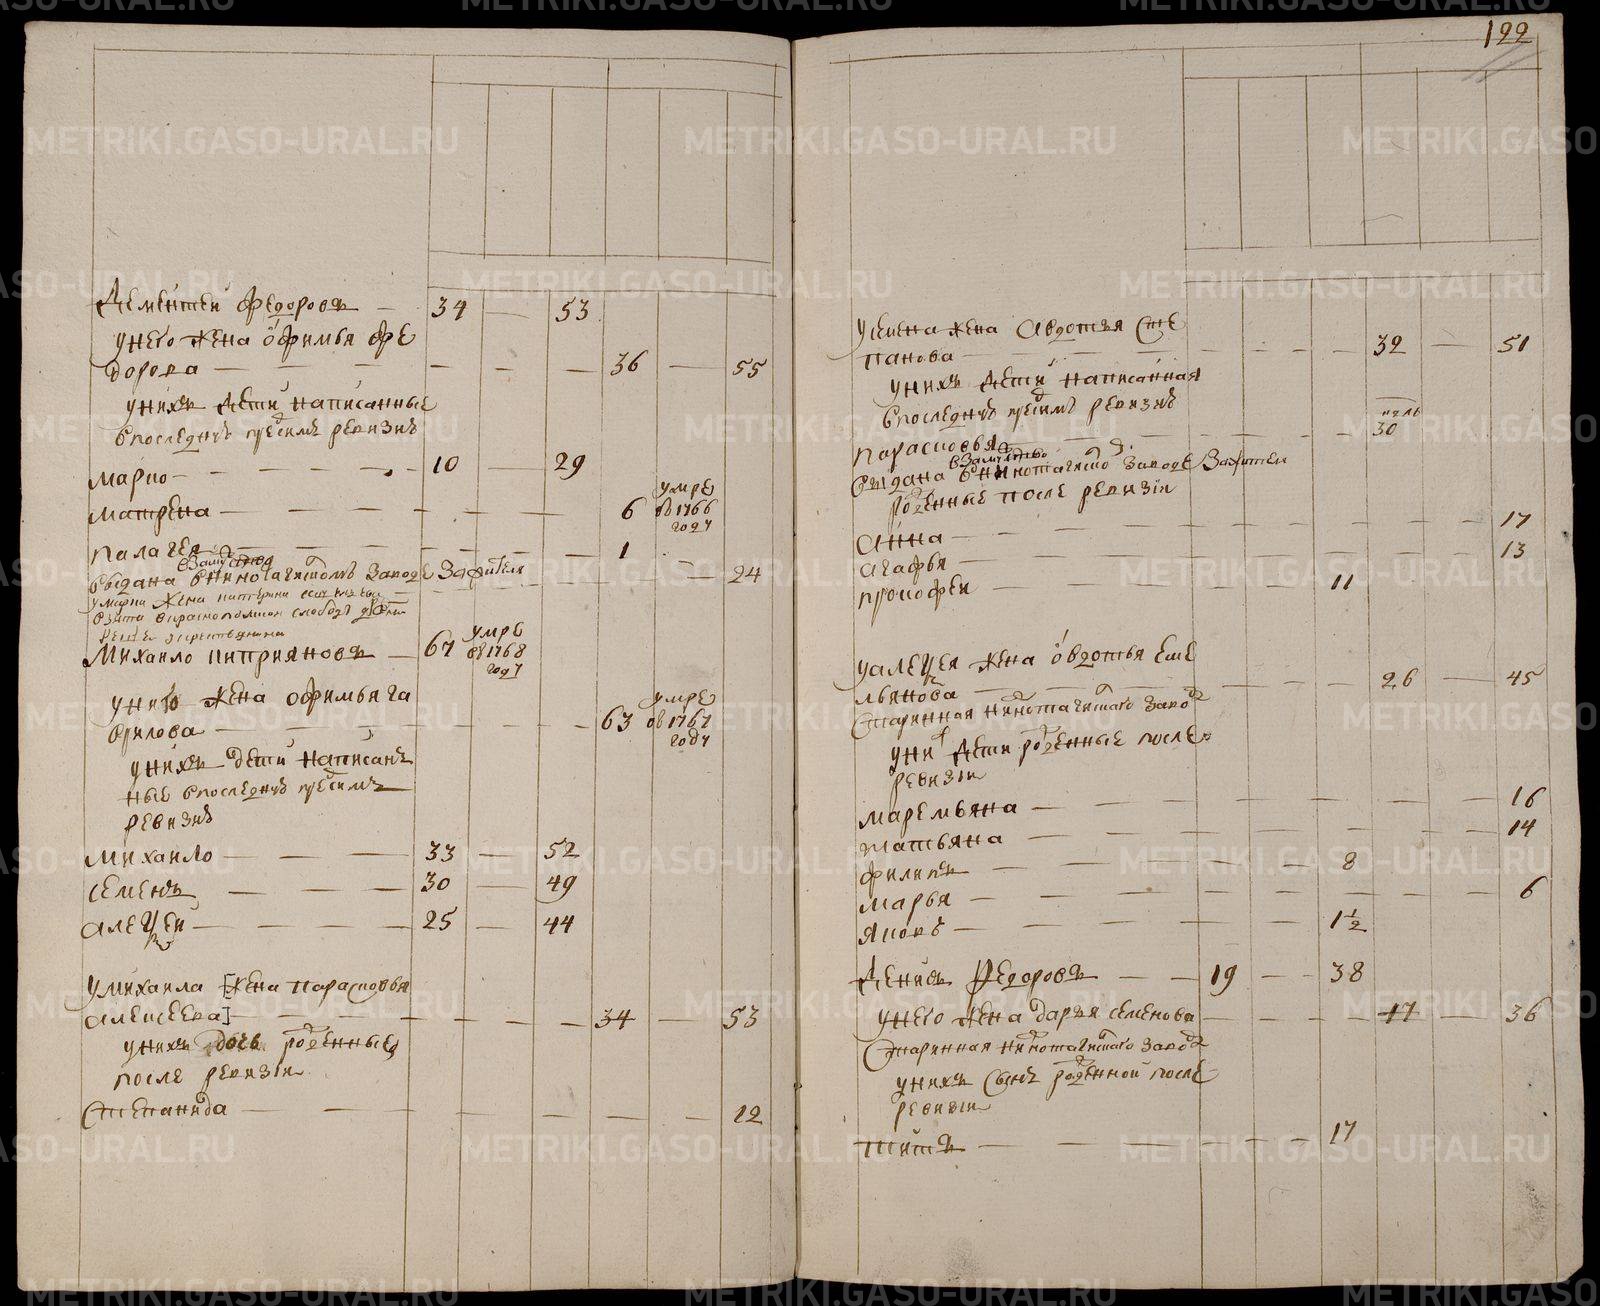 122
Дементей Федоровъ 34 53
у него жена Офимья Фе
дорова 36 55
у нихъ дети написанные
в последнуѣ пред симъ ревизиѣ
Марко 10 29
Матрена 6 умре в 1766 году
Палагея 1
в замужство
выдана в Нижнотагилскомъ заводе за жителя 24
у Марки жена Катерина
взята Краснопольской слободе дрвни
крестьянина
Михаило Киприяновъ 67 умре в 1768 году
у него жена Офимья Га
врилова 63 умре в 1767 году
у нихъ дети написанъ
ные в последнуѣ пред симъ
ревизиѣ
Михаило 33 52
Семенъ 30 49
Алексей 25 44
у Михаила [жена Парасковья
Алексеева] 34 53
у нихъ дочь рожденные
после ревизии
Степанида 12
у Семена жена Авдотья Сте
панова 32 51
у нихъ дети написанная
в последнуѣ пред симъ ревизиѣ
Парасковья 30
в замужство
выдана в Нижнотагилско заводе за жителя
рожденные после ревизии
Анна 17
Агафья 13
Прокофеи 11
у Алексея жена Овдотья Еме
льянова 26 45
старинная Нижнотагилского завода
у них дети рожденные после
ревизии
Маремьяна 16
Татьяна 14
Филипъ 8
Марья 6
Яковъ 1½
Денисъ Федоровъ 19 38
у него жена Дарья Семенова 17 36
старинная Нижнотагилского завода
у нихъ сынъ рожденной после
ревизии
Титъ 17
METRIKI.GASO-URAL.RU